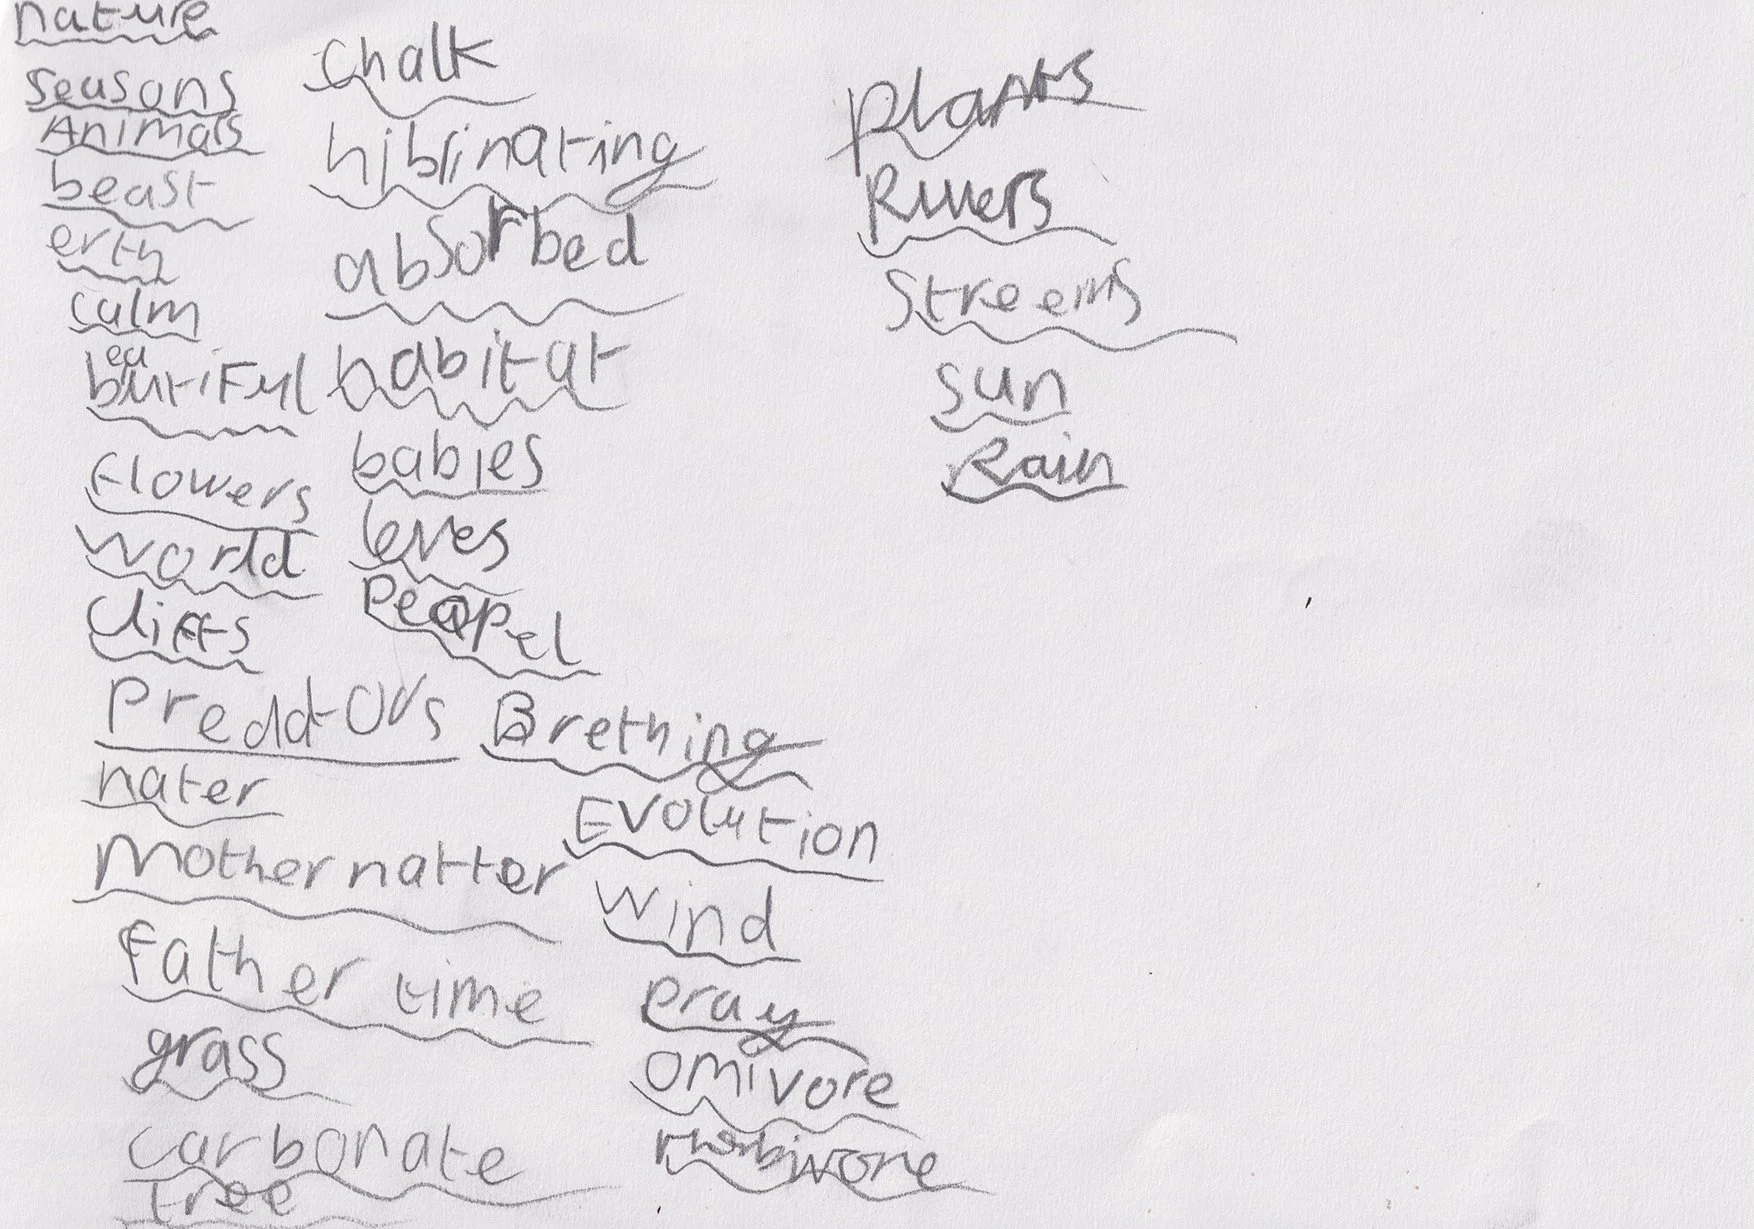 nature
seasons
Animals
beast
erth
calm
beautiful
flowers
world
cliffs
Preddtors
nater
Mother natter
Father time
grass
carbonate
tree
chalk
hibrinating
absorbed
habitat
babies
leves
Peapel
Brething
Evolution
wind
pray
omivore
plants
Rivers
Streems
sun
Rain